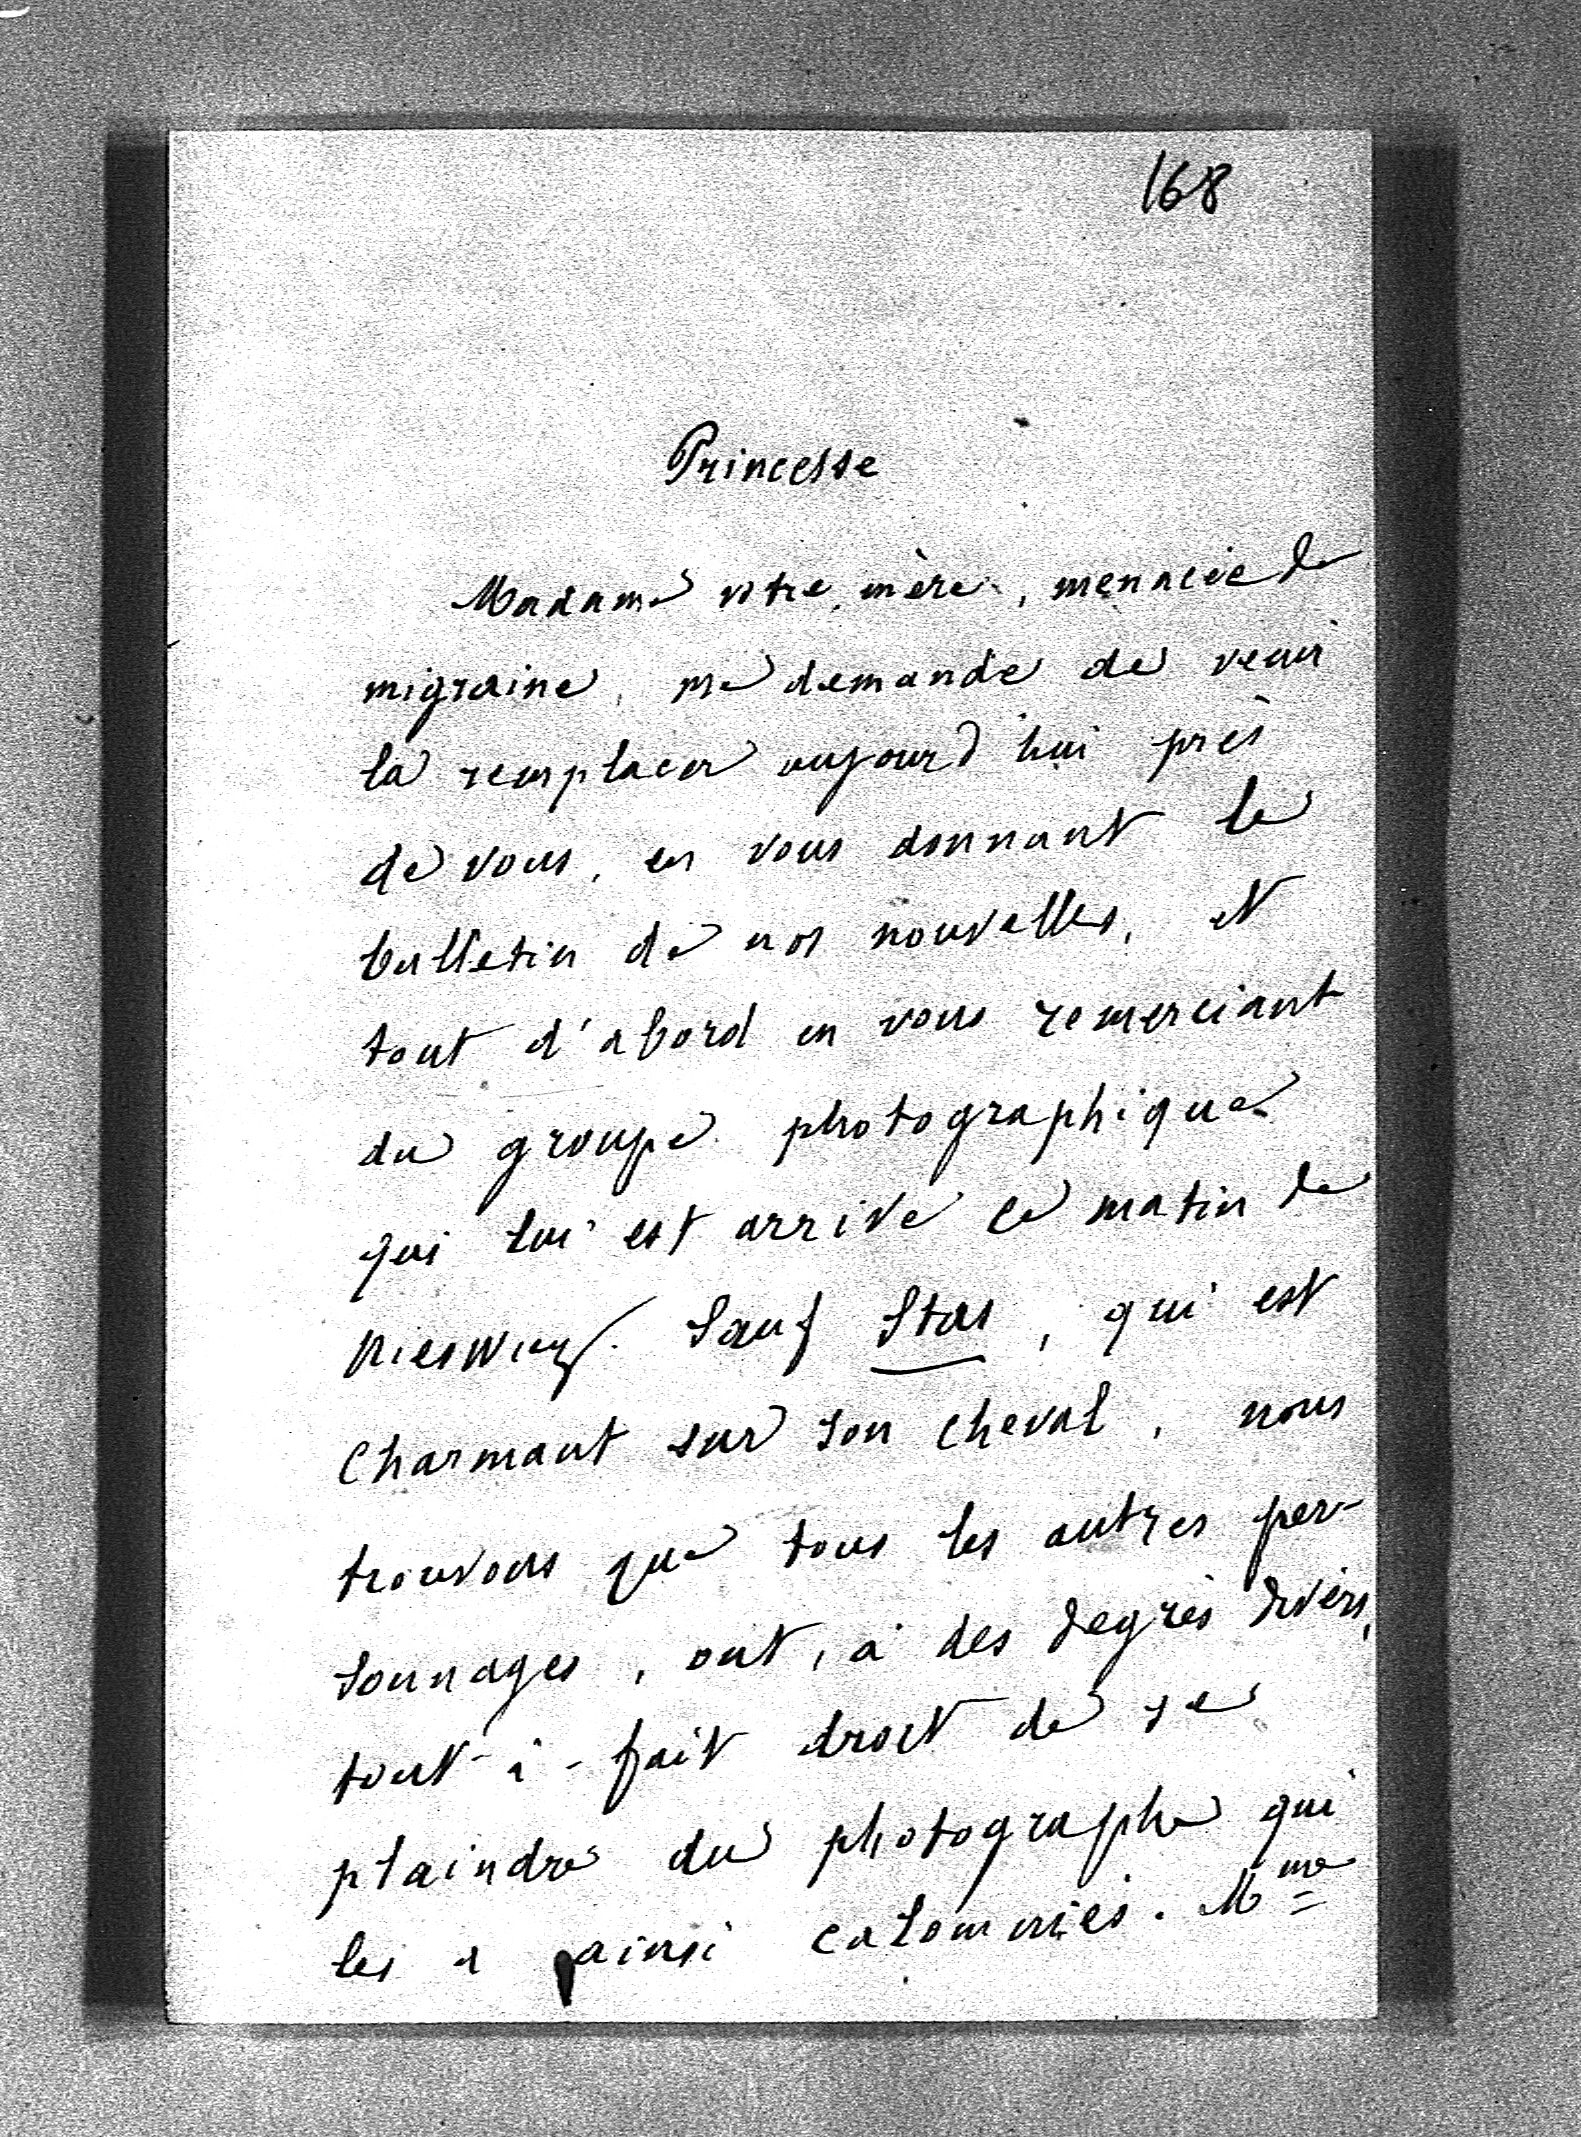 168
Princesse
Madame votre mère, menacée de
migraine, me demande de venir
la remplacer aujourd'hui près
de vous, en vous donnant le
bulletin de nos nouvelles, et
tout d'abord en vous remerciant
du groupe photographique
qui lui est arrivé ce matin de
Nieswiez. Sauf Stas, qui est
charmant sur son cheval, nous
trouvons que tous les autres per-
sonnages, ont, à des degrés divers,
tout-à-fait droit de se
plaindre du photographe qui
les a ainsi calomniés. Mme